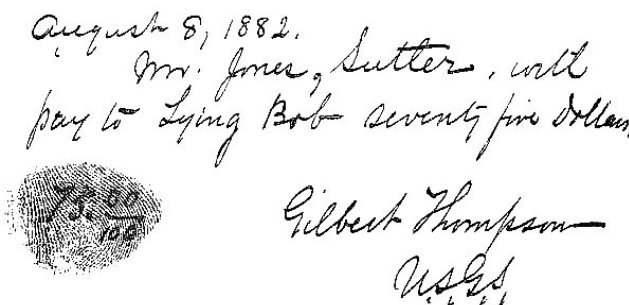 August 8, 1882.
Mr. Jones, Sutter, will
pay to Lying Bob seventy five Dollars.
75. 00/100
Gilbert Thompson
U.S.G.S